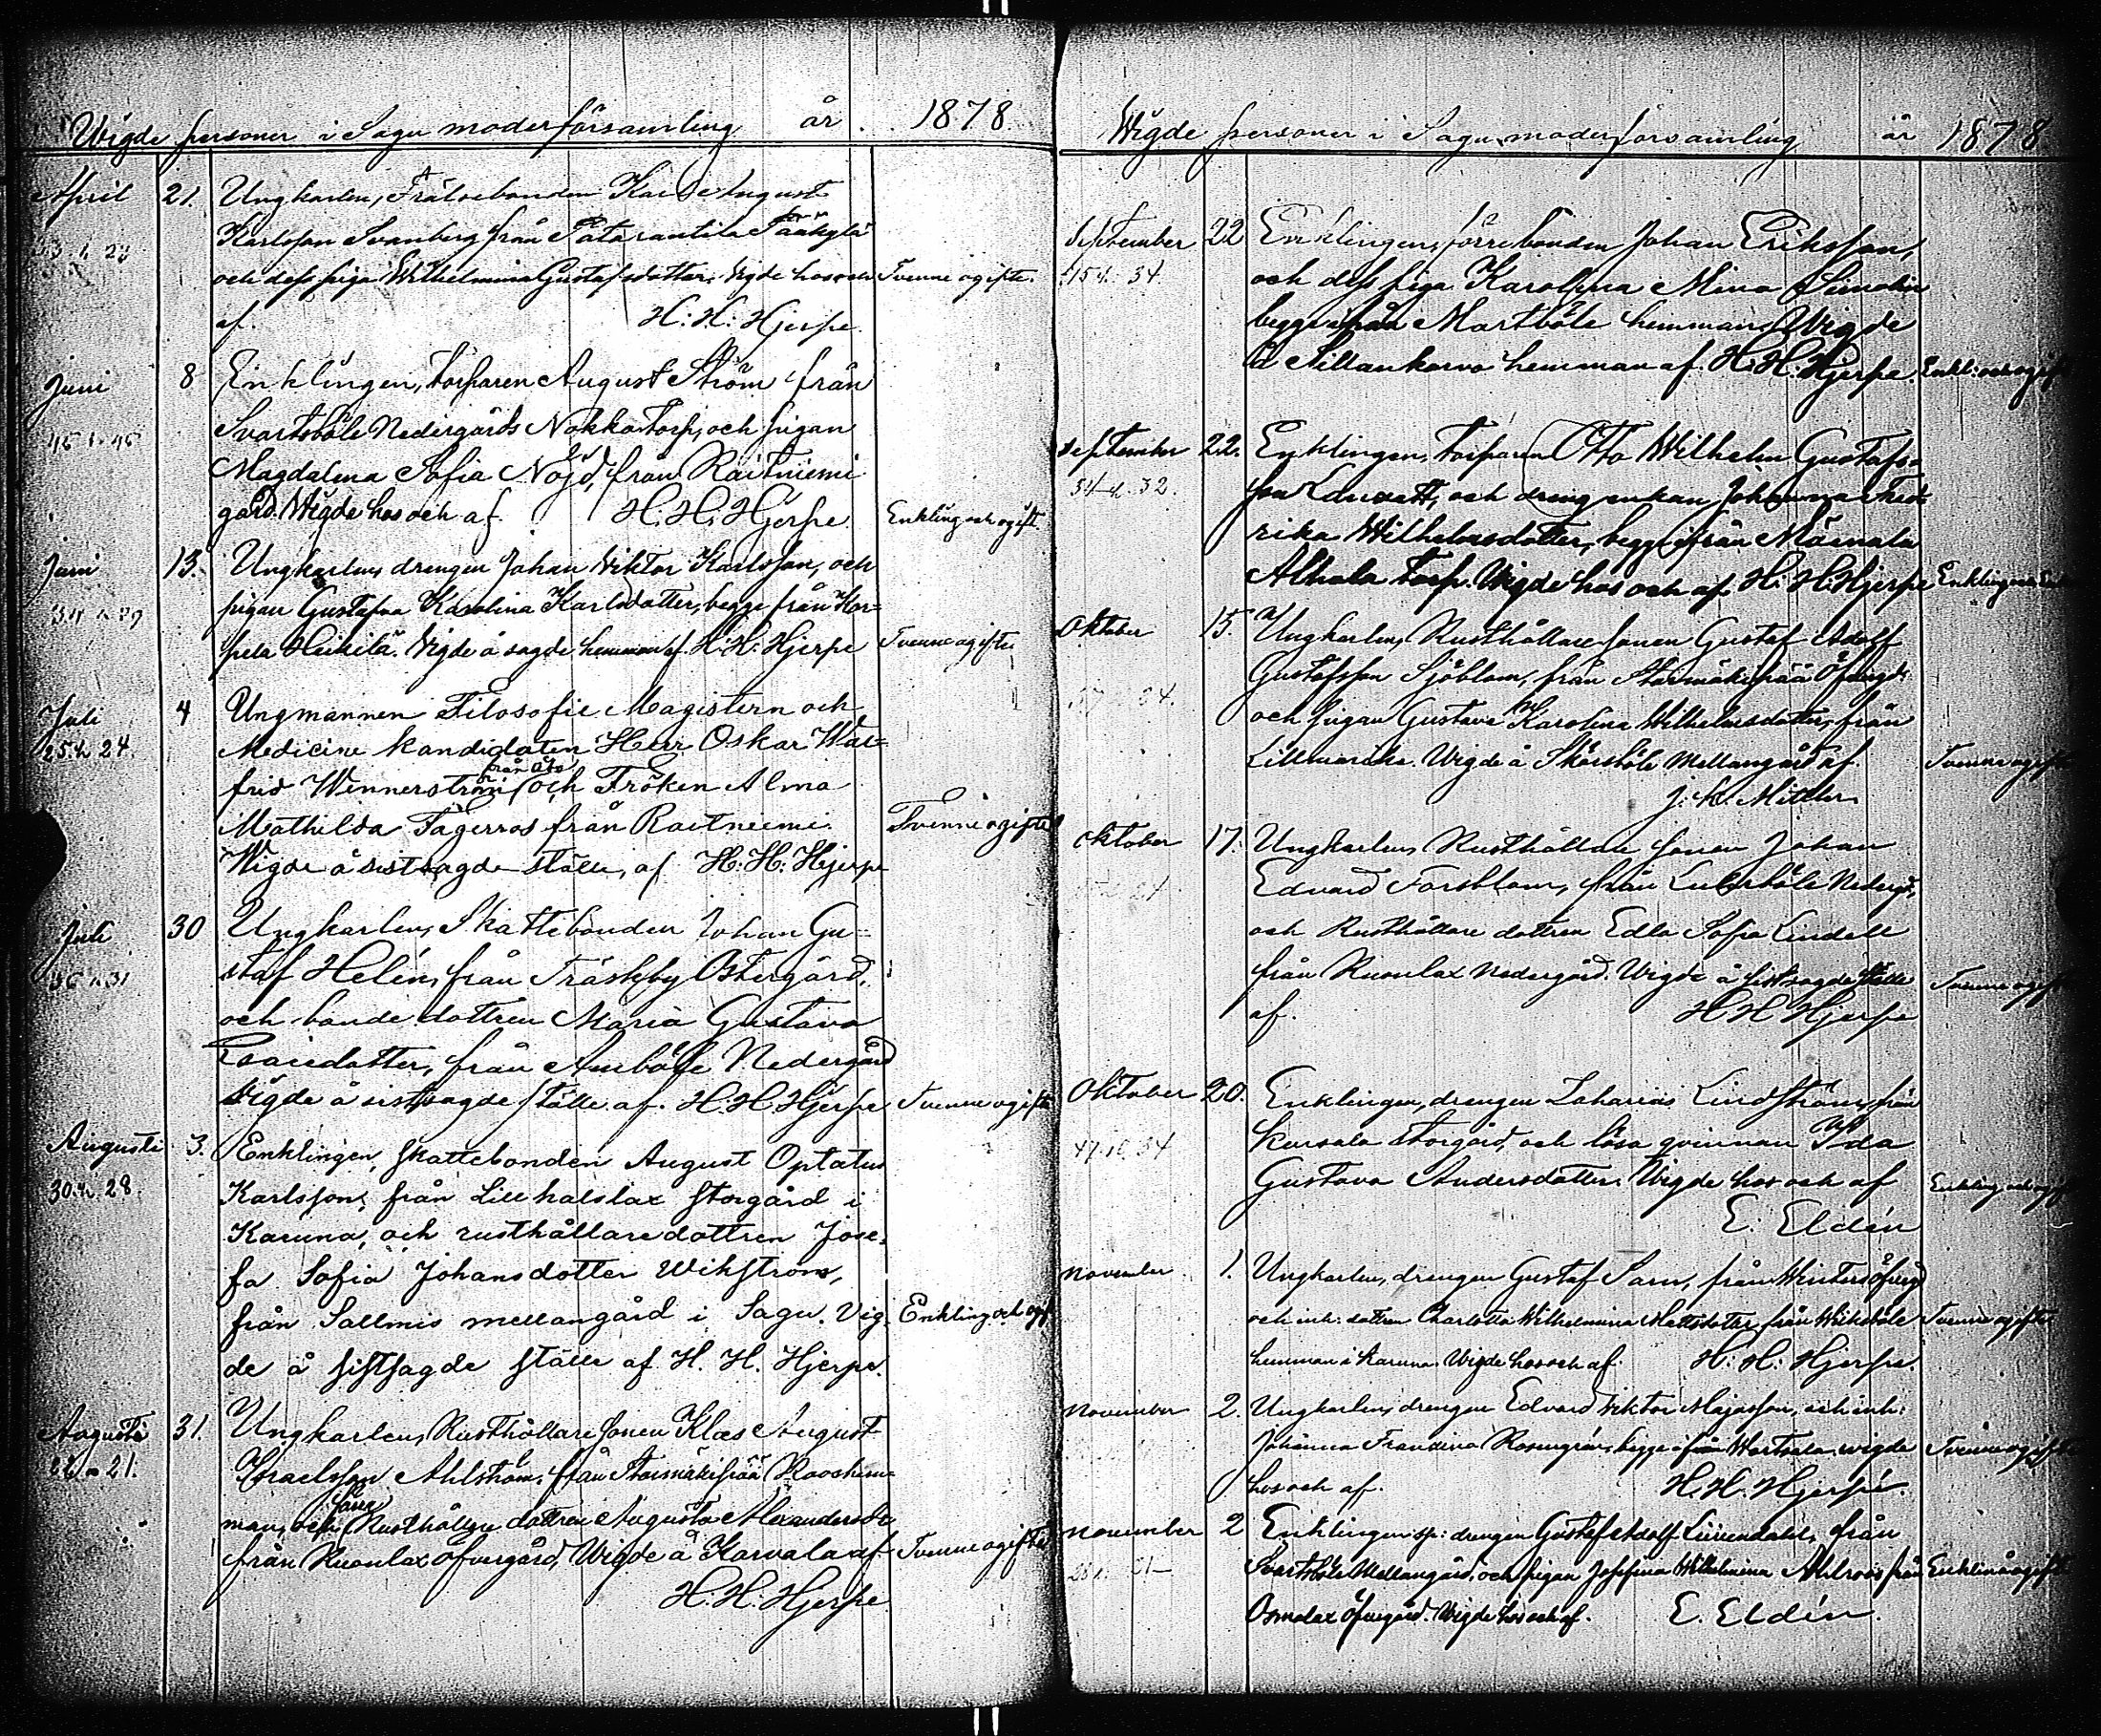 Wigde personer i Sagu moderförsamling år 1878.
April 21. Ungkarlen, Frälsebonden Karl August
Karlsson Svanberg från Pätarantila Pääkylä
och dess piga Wilhelmina Gustafsdotter. Vigde hos och Tvenne ogifte.
af. H: H: Hjerpe.
Juni 8 Enklingen, torparen August Ström från
45 h. 45 Svartsböle Nedergårds Nokka torp, och pigan
Magdalena Sofia Nöjd, från Raitniemi
gård. Wigde hos och af H: H: Hjerpe. Enkling och ogift
Juni 13. Ungkarlen, drengen Johan Viktor Karlsson, och
pigan Gustafva Karolina Karlsdotter, begge från Kor=
pela Heikilä. Vigde å sagde hemman af H: H: Hjerpe Tvenne ogifte
Juli 4 Ungmannen Filosofie Magistern och
25 h. 24. Medicine kandidaten Herr Oskar Wal=
från Åbo
frid Winnerström och Fröken Alma
Mathilda Fagerros från Raitniemi. Tvenne ogifte
Wigde å sistsagde ställe, af H: H: Hjerpe
Juli 30 Ungkarlen, Skattebonden Johan Gu=
staf Helén, från Träskby Östergård,
och bonde dottren Maria Gustava
Esaiedotter, från Amböle Nedergård
Vigde å sistsagde ställe af. H. H. Hjerpe Tvenne ogifte
Augusti 3. Enklingen, skattebonden August Optatus
30. h. 28. Karlsson, från Lill halslax storgård i
Karuna, och rusthållaredottren Jose=
fa Sofia Johansdotter Wikström,
från Sallmis mellangård i Sagu. Vig= Enkling och ogift
de å sistsagde ställe af H. H. Hjerpe.
Augusti 31. Ungkarlen, Rusthållare sonen Klas August
21. Israelsson Ahlström, från Stormälkipää
man, och Rusthållare dottren Augusta Alexandersdr
från Ruonlax Öfvergård, Wigde å Karvala af Tvenne ogifte
H. H. Hjerpe
Wigde personer i Sagu moderförsamling år 1878
September 22 Enklingen, förre bonden Johan Eriksson,
34. och dess piga Karolina Mina
begge från Martböle hemman. Wigde
å Sillankorva hemman af. H: H: Hjerpe. Enkl: och ogift
September 22. Enklingen, torparen Otto Wilhelm Gustafs=
34 h. 32. son och dreng enkan Johanna Fred=
rika Wilhelmsdotter, begge från
Alhala torp. Wigde hos och af. H: H. Hjerpe Enkling och Enka
Oktober 15. Ungkarlen, Rusthållare sonen Gustaf Adolf
Gustafsson Sjöblom, från Stormälkipää Öfvergd
och pigan Gustava Karolina Wilhelmsdotter, från
Wigde å Skärsböle Mellangård af. Tvenne ogifte
Oktober 17. Ungkarlen, Rusthållare sonen Johan
Edvard Forsblom, från Nedergd,
och Rusthållare dottren Edla Sofia Lindell
från Ruonlax Nedergård. Wigde å sistsagde ställe Tvenne ogifte
af. H H Hjerpe
Oktober 20. Enklingen, drengen Zakarias Lindström, från
47 h. 34 Storgård, och lösa qvinnan Ida
Gustava Andersdotter. Wigde hos och af Enkling och ogift
E. Eldén
November 1. Ungkarlen, drengen Gustaf från
och inh: dottren Charlotta Wilhelmina Mattsdotter från Tvenne ogifte
hemman i Karuna. Wigde hos och af. H: H: Hjerpe.
November 2. Ungkarlen, drengen Edvard Viktor och inh:
Johanna Frandina Rosengrén, begge från wigde Tvenne ogifte
hos och af. H. H. Hjerpe.
November 2 Enklingen sp: drengen Gustaf Adolf Liljendahl, från
Svartsböle Mellangård, och pigan Josefina Wilhelmina Ahlroos från Enkling ogift
Osmalax Öfvergård. Wigde hos och af. E. Eldén.